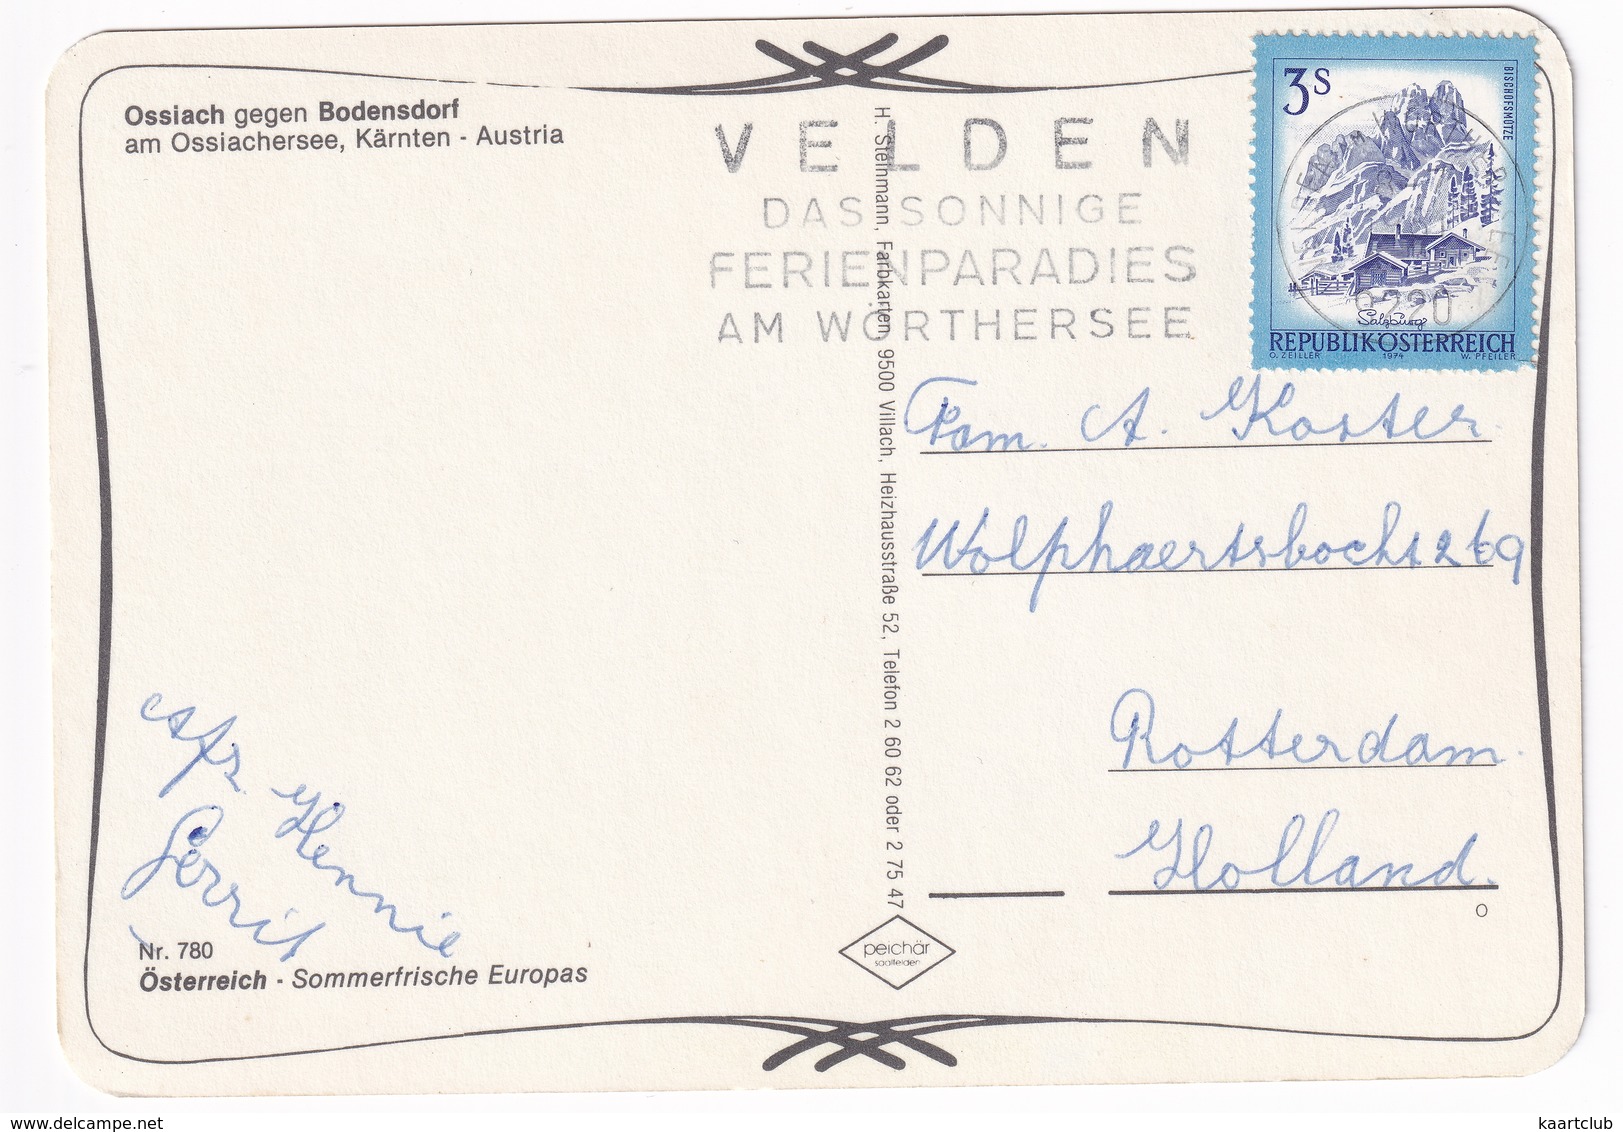 Ossiach gegen Bodensdorf
am Ossiachersee, Kärnten - Austria
VELDEN
DAS SONNIGE
FERIENPARADIES
AM WÖRTHERSEE
3S
BISCHOFSMÜTZE
9220
Salzburg
REPUBLIK ÖSTERREICH
O. ZEILLER 1974 W. PFEILER
H. Steinmann, Farbkarten, 9500 Villach, Heizhausstraße 52, Telefon 2 60 62 oder 2 75 47
Fam. A. Koster
Wolphaertsbocht 269
Rotterdam.
Holland.
Hennie
Gerrit
Nr. 780
Österreich - Sommerfrische Europas
peichär
saalfelden
kaartclub